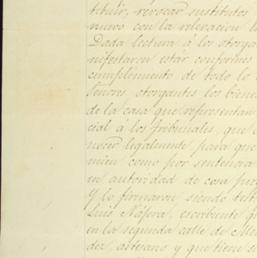 tituir, revocar sustitutos
nuevo con la relevacion
Dada lectura á los otorgan
nifestaron estar conformes
cumplimiento de todo lo
señores otorgantes los biene
de la casa que representan
cial á los Tribunales, que
nocer legalmente, para que
mien como por sentencia
en autoridad de cosa juz
Y lo firmaron siendo test
Luis Najera, escribiente q
en la segunda calle de Me
dez, artesano y que tiene s